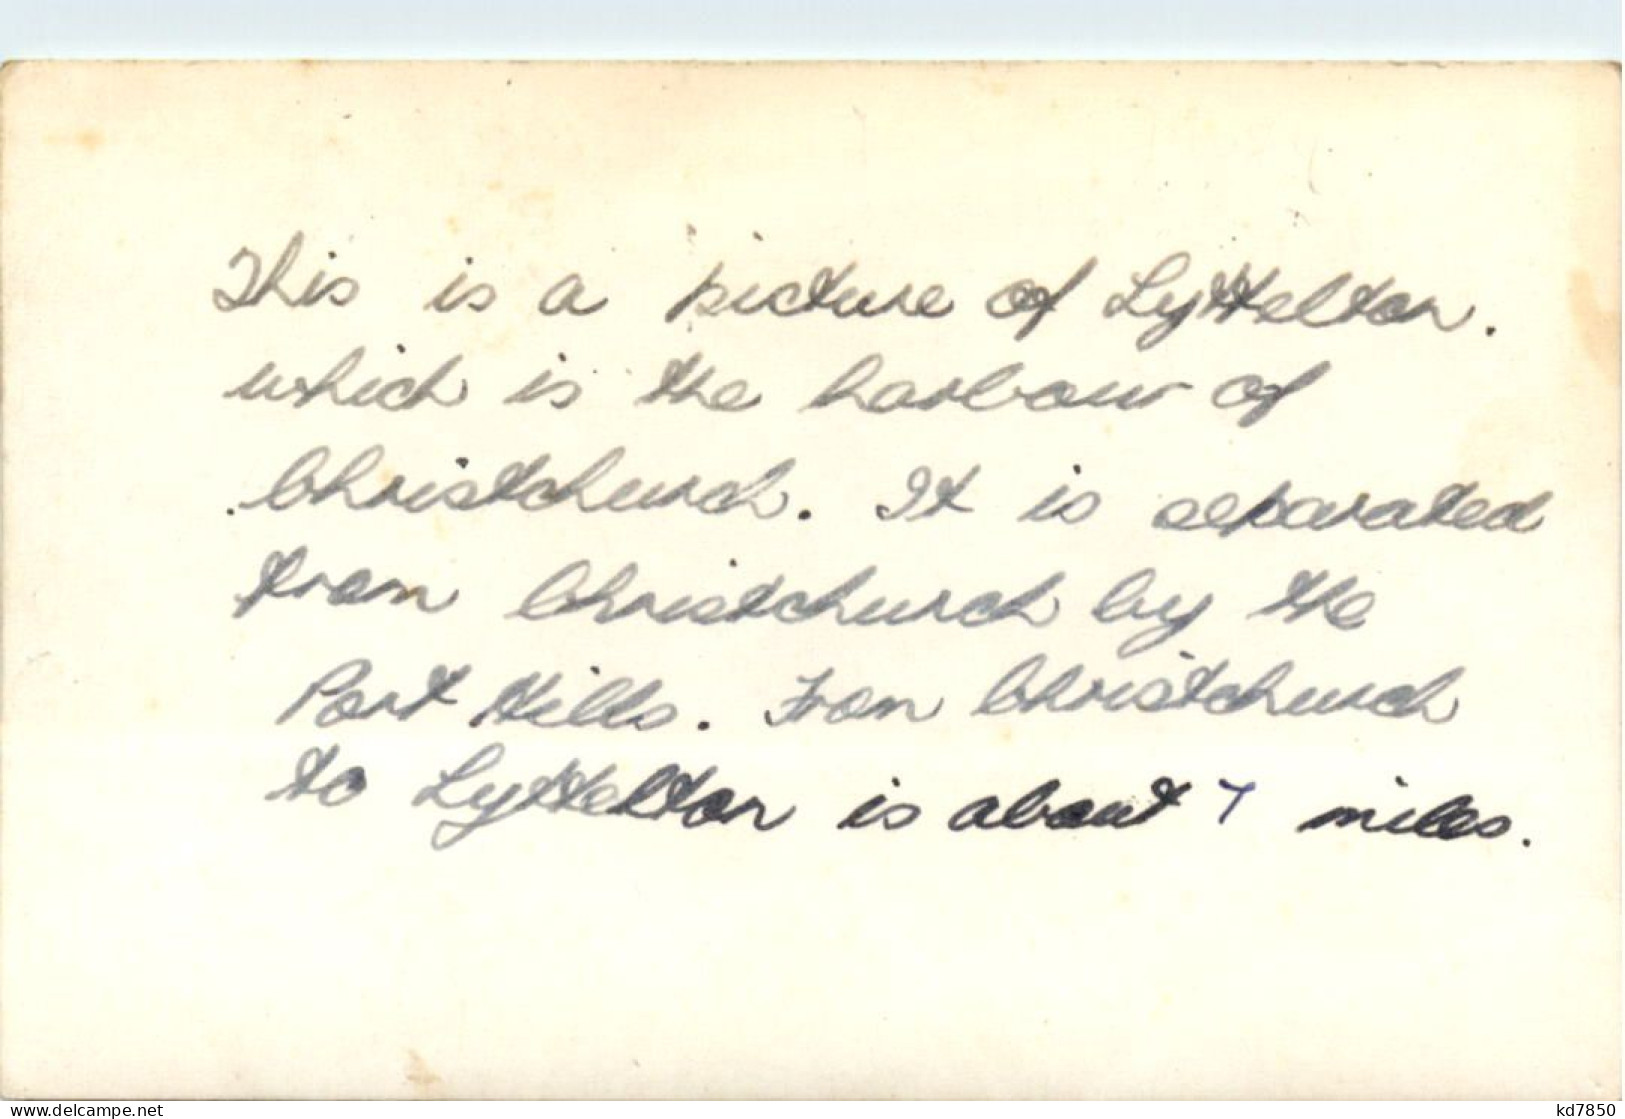 This is a picture of Lyttelton.
which is the harbour of
Christchurch. It is separated
from Christchurch by the
Port Hills. From Christchurch
to Lyttelton is about 7 miles.
www.delcampe.net
kd7850